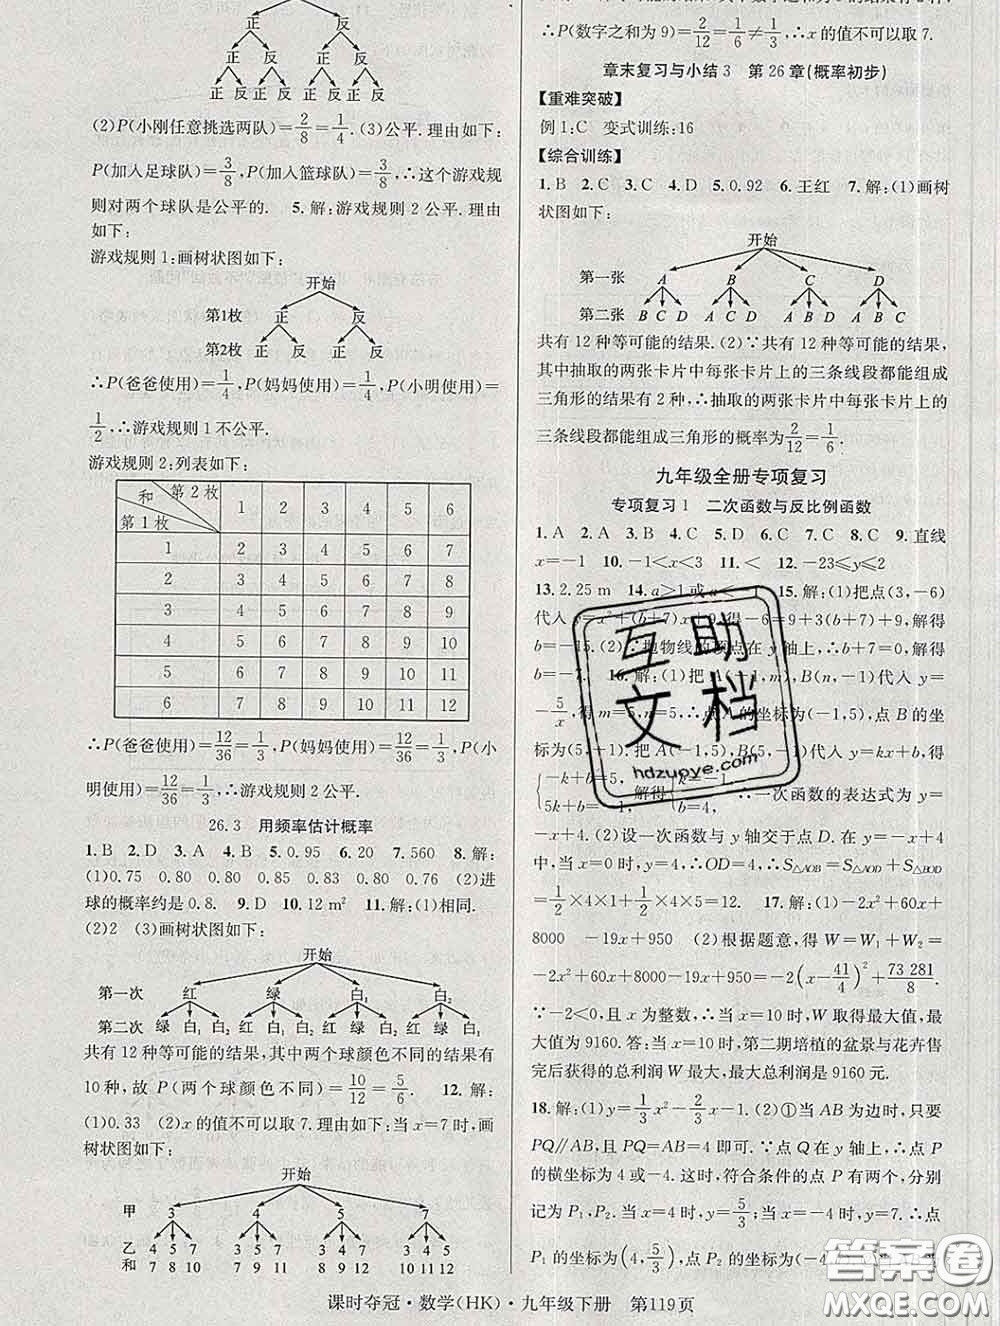 正 反
正 反 正 反
正 反 正 反 正 反 正 反
(2)P(小刚任意挑选两队)=2/8=1/4. (3)公平. 理由如下:
P(加入足球队)=3/8,P(加入篮球队)=3/8,∴这个游戏规
则对两个球队是公平的. 5.解:游戏规则 2 公平. 理由
如下:
游戏规则 1:画树状图如下:
开始
第1枚 正 反
第2枚 正 反 正 反
∴P(爸爸使用)=1/4,P(妈妈使用)=1/4,P(小明使用)=
1/2,∴游戏规则 1 不公平.
游戏规则 2:列表如下:
和 第 2 枚 第 1 枚 1 2 3 4 5 6
1 2 3 4 5 6 7
2 3 4 5 6 7 8
3 4 5 6 7 8 9
4 5 6 7 8 9 10
5 6 7 8 9 10 11
6 7 8 9 10 11 12
∴P(爸爸使用)=12/36=1/3,P(妈妈使用)=12/36=1/3,P(小
明使用)=12/36=1/3,∴游戏规则 2 公平.
26.3 用频率估计概率
1.B 2.D 3.A 4.B 5.0.95 6.20 7.560 8.解:
(1)0.75 0.80 0.80 0.85 0.80 0.76 (2)进
球的概率约是 0.8. 9.D 10.12 m² 11.解:(1)相同.
(2)2 (3)画树状图如下:
开始
第一次 红 绿 白₁ 白₂
第二次 绿 白₁ 白₂ 红 白₁ 白₂ 红 绿 白₂ 红 绿 白₁
共有 12 种等可能的结果,其中两个球颜色不同的结果有
10 种,故 P(两个球颜色不同)=10/12=5/6. 12.解:
(1)0.33 (2)x 的值不可以取 7. 理由如下:当 x=7 时,画
树状图如下:
开始
甲 3 4 5 7
乙 4 5 7 3 5 7 3 4 7 3 4 5
和 7 8 10 7 9 11 8 9 12 10 11 12
∴P(数字之和为 9)=2/12=1/6≠1/3,∴x 的值不可以取 7.
章末复习与小结 3 第 26 章(概率初步)
【重难突破】
例 1:C 变式训练:16
【综合训练】
1.B 2.C 3.C 4.D 5.0.92 6.王红 7.解:(1)画树
状图如下:
开始
第一张 A B C D
第二张 B C D A C D A B D A B C
共有 12 种等可能的结果. (2)∵共有 12 种等可能的结果,
其中抽取的两张卡片中每张卡片上的三条线段都能组成
三角形的结果有 2 种,∴抽取的两张卡片中每张卡片上的
三条线段都能组成三角形的概率为2/12=1/6.
九年级全册专项复习
专项复习 1 二次函数与反比例函数
1.A 2.A 3.B 4.C 5.D 6.C 7.C 8.C 9.直线
x=-1 10.-1<x<3 11.< 12.-23≤y≤2
13.2.25 m 14.a>1 或 a< 15.解:(1)把点(3,-6)
代入 y=x²+(b+7)x+9,得-6=9+3(b+7)+9,解得
b=-15. (2)∵抛物线的顶点在 y 轴上,∴b+7=0,解得
b=-7. 16.解:(1)把 A(-1,m),B(n,-1)代入 y=
-5/x,得 m=5,n=5,∴点 A 的坐标为(-1,5),点 B 的坐
标为(5,-1). 把 A(-1,5),B(5,-1)代入 y=kx+b,得
{-k+b=5 5k+b=-1,解得{k=-1 b=4,∴一次函数的表达式为 y=
-x+4. (2)设一次函数与 y 轴交于点 D. 在 y=-x+4
中,当 x=0 时,y=4,∴OD=4,∴S△AOB=S△AOD+S△BOD=
1/2×4×1+1/2×4×5=12. 17.解:(1)-2x²+60x+
8000 -19x+950 (2)根据题意,得 W=W₁+W₂=
-2x²+60x+8000-19x+950=-2(x-41/4)²+73 281/8.
∵-2<0,且 x 为整数,∴当 x=10 时,W 取得最大值,最
大值为 9160. 答:当 x=10 时,第二期培植的盆景与花卉售
完后获得的总利润 W 最大,最大总利润是 9160 元.
18.解:(1)y=1/3x²-2/3x-1. (2)①当 AB 为边时,只要
PQ∥AB,且 PQ=AB=4 即可. ∵点 Q 在 y 轴上,∴点 P
的横坐标为 4 或-4. 这时,符合条件的点 P 有两个,分别
记为 P₁,P₂. 当 x=4 时,y=5/3;当 x=-4 时,y=7,∴点
P₁ 的坐标为(4,5/3),点 P₂ 的坐标为(-4
课时夺冠·数学(HK)·九年级下册 第119页
互助文档
hdzuoye.com
答案圈
MXQE.COM